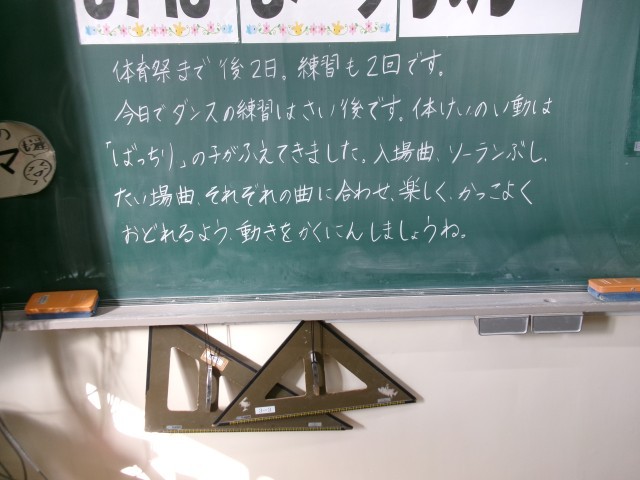 体育祭まで後2日。練習も2回です。
今日でダンスの練習はさい後です。体けいのい動は
「ばっちり」の子がふえてきました。入場曲、ソーランぶし、
たい場曲、それぞれの曲に合わせ、楽しく、かっこよく
おどれるよう、動きをかくにんしましょうね。